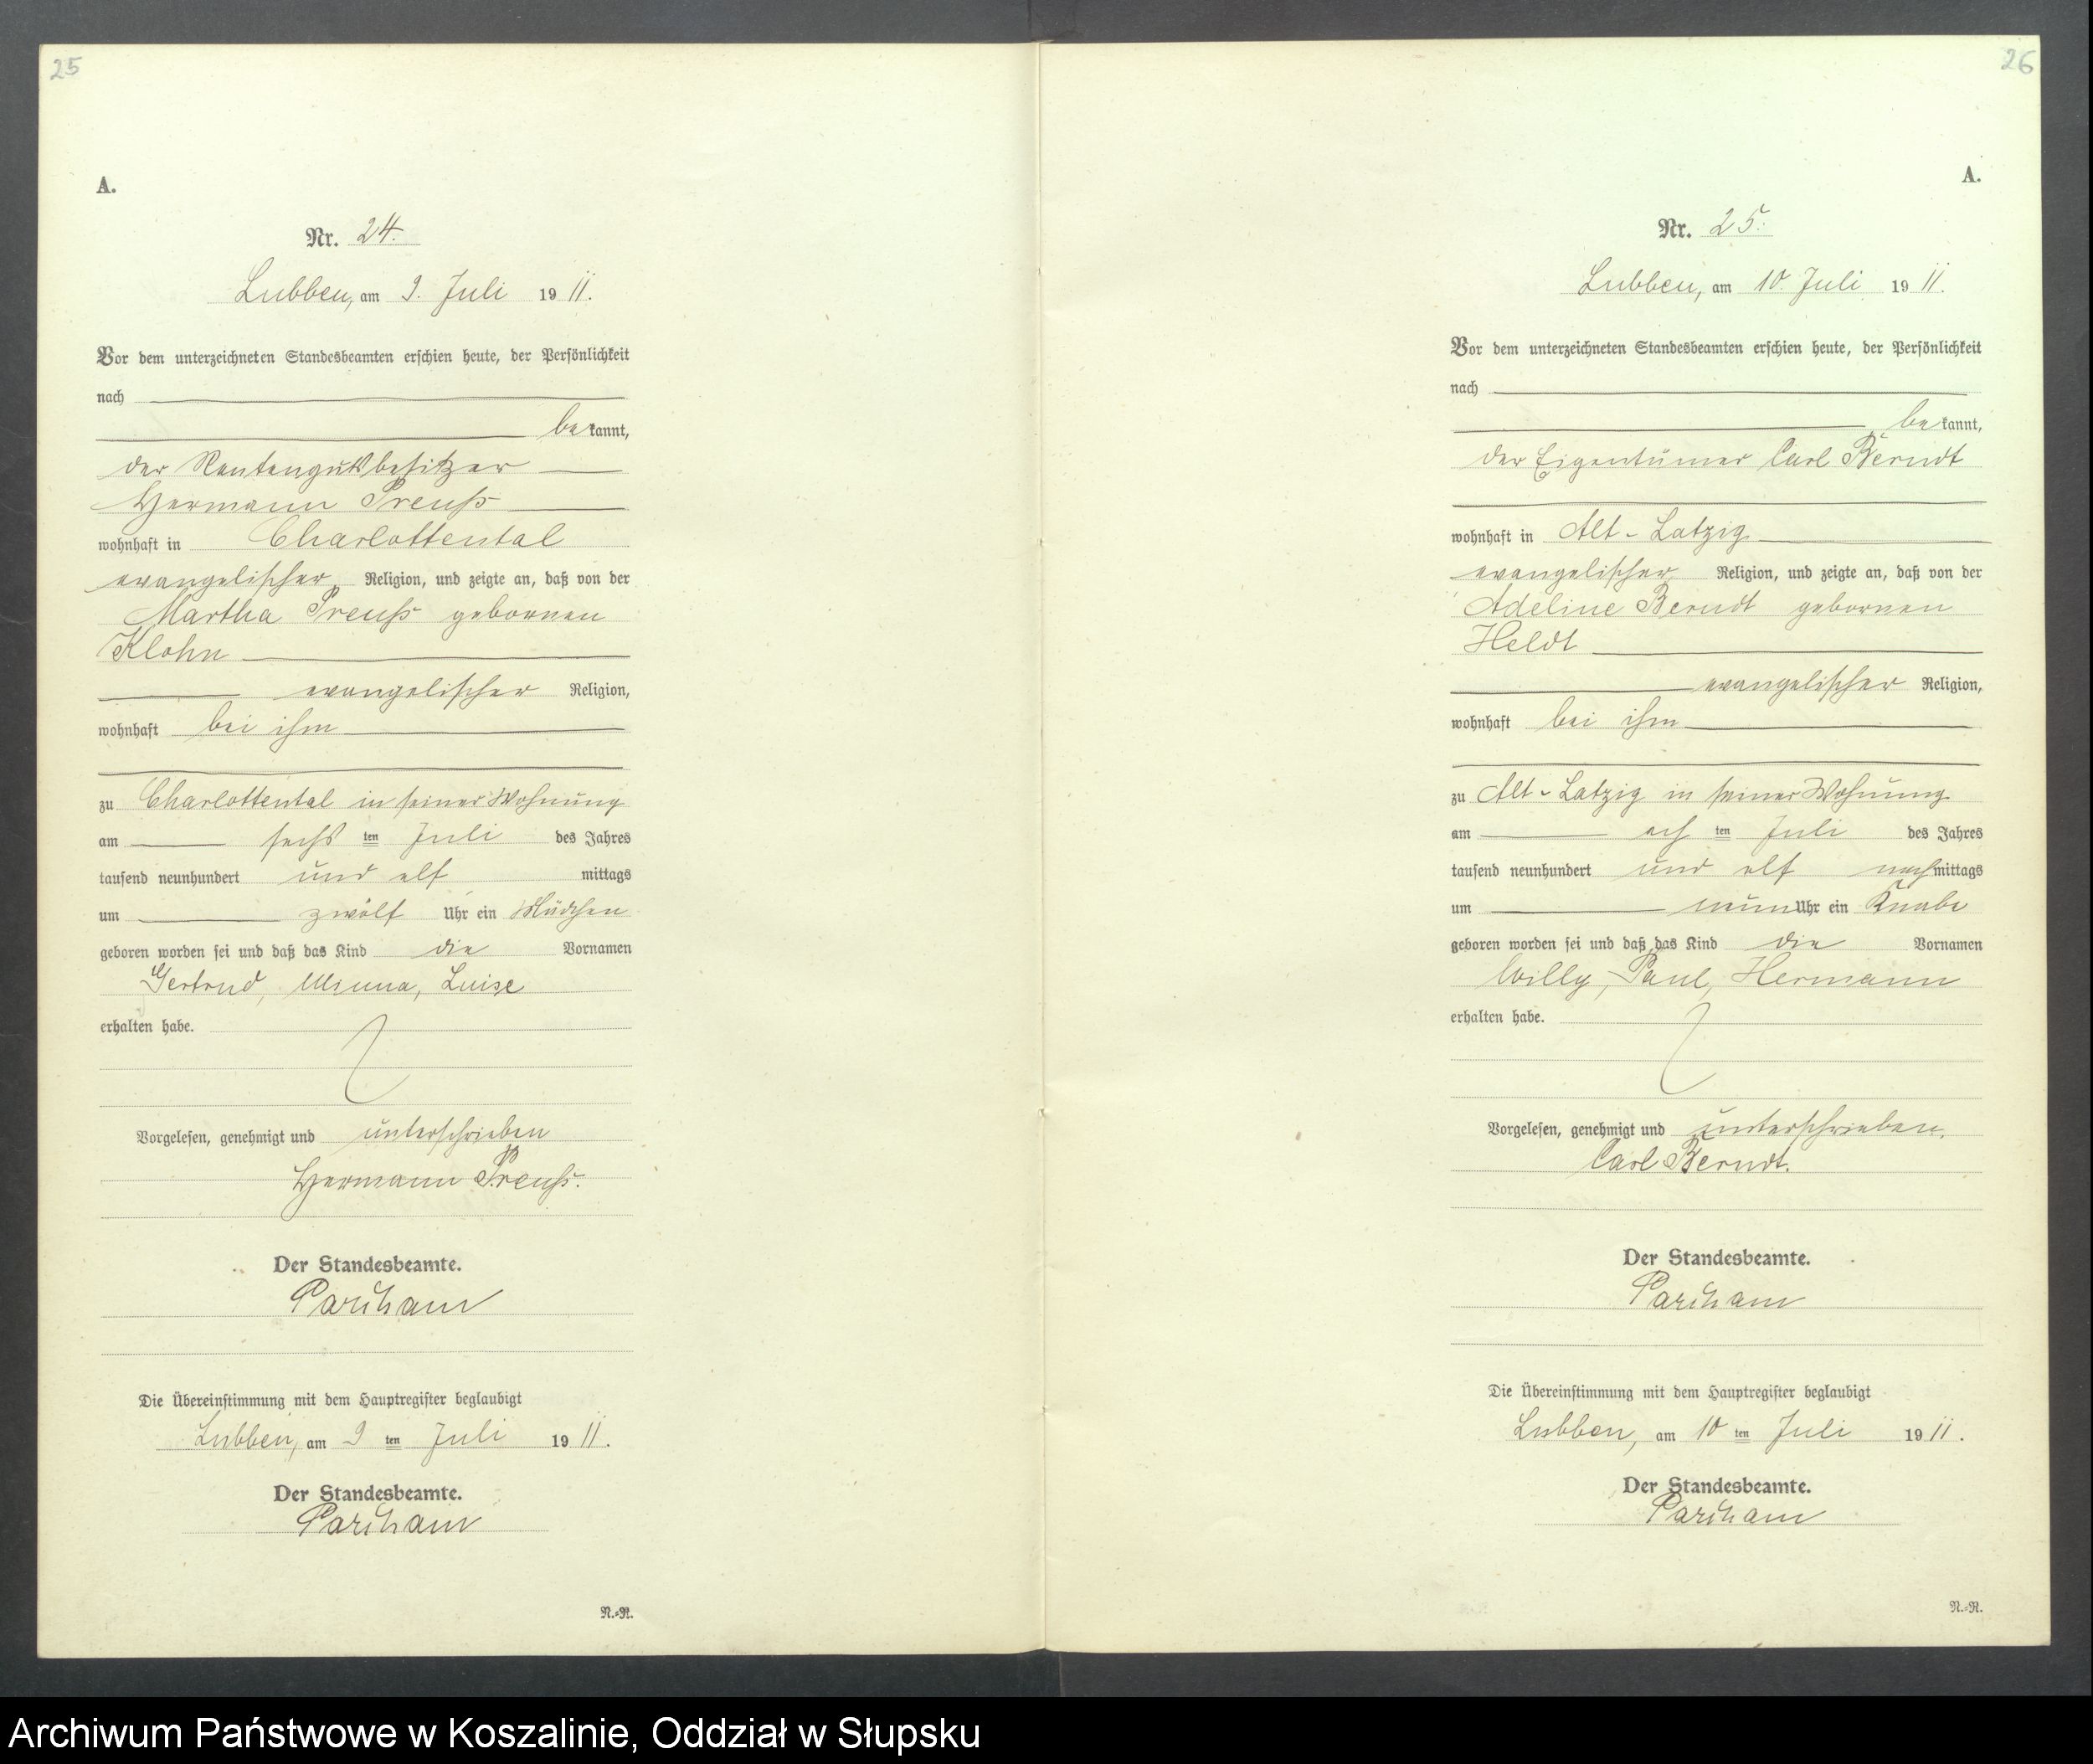 25
A.
Nr. 24.
Lubben, am 9. Juli 1911.
Vor dem unterzeichneten Standesbeamten erschien heute, der Persönlichkeit
nach
bekannt,
der Rentengutsbesitzer
Hermann Preuß
wohnhaft in Charlottental
evangelischer Religion, und zeigte an, daß von der
Martha Preuß gebornen
Klohn
evangelischer Religion,
wohnhaft bei ihm
zu Charlottental in seiner Wohnung
am sechsten Juli des Jahres
tausend neunhundert und elf mittags
um zwölf Uhr ein Mädchen
geboren worden sei und daß das Kind die Vornamen
Gertrud, Minna, Luise
erhalten habe.
Vorgelesen, genehmigt und unterschrieben
Hermann Preuß.
Der Standesbeamte.
Die Übereinstimmung mit dem Hauptregister beglaubigt
Lubben, am 9ten Juli 1911.
Der Standesbeamte.
N.=R.
26
A.
Nr. 25.
Lubben, am 10. Juli 1911.
Vor dem unterzeichneten Standesbeamten erschien heute, der Persönlichkeit
nach
bekannt,
der Eigentümer Carl Berndt
wohnhaft in Alt-Latzig
evangelischer Religion, und zeigte an, daß von der
Adeline Berndt gebornen
Heldt
evangelischer Religion,
wohnhaft bei ihm
zu Alt-Latzig in seiner Wohnung
am achten Juli des Jahres
tausend neunhundert und elf nachmittags
um neun Uhr ein Knabe
geboren worden sei und daß das Kind die Vornamen
Willy, Paul, Hermann
erhalten habe.
Vorgelesen, genehmigt und unterschrieben.
Carl Berndt.
Der Standesbeamte.
Die Übereinstimmung mit dem Hauptregister beglaubigt
Lubben, am 10ten Juli 1911.
Der Standesbeamte.
N.=R.
Archiwum Państwowe w Koszalinie, Oddział w Słupsku